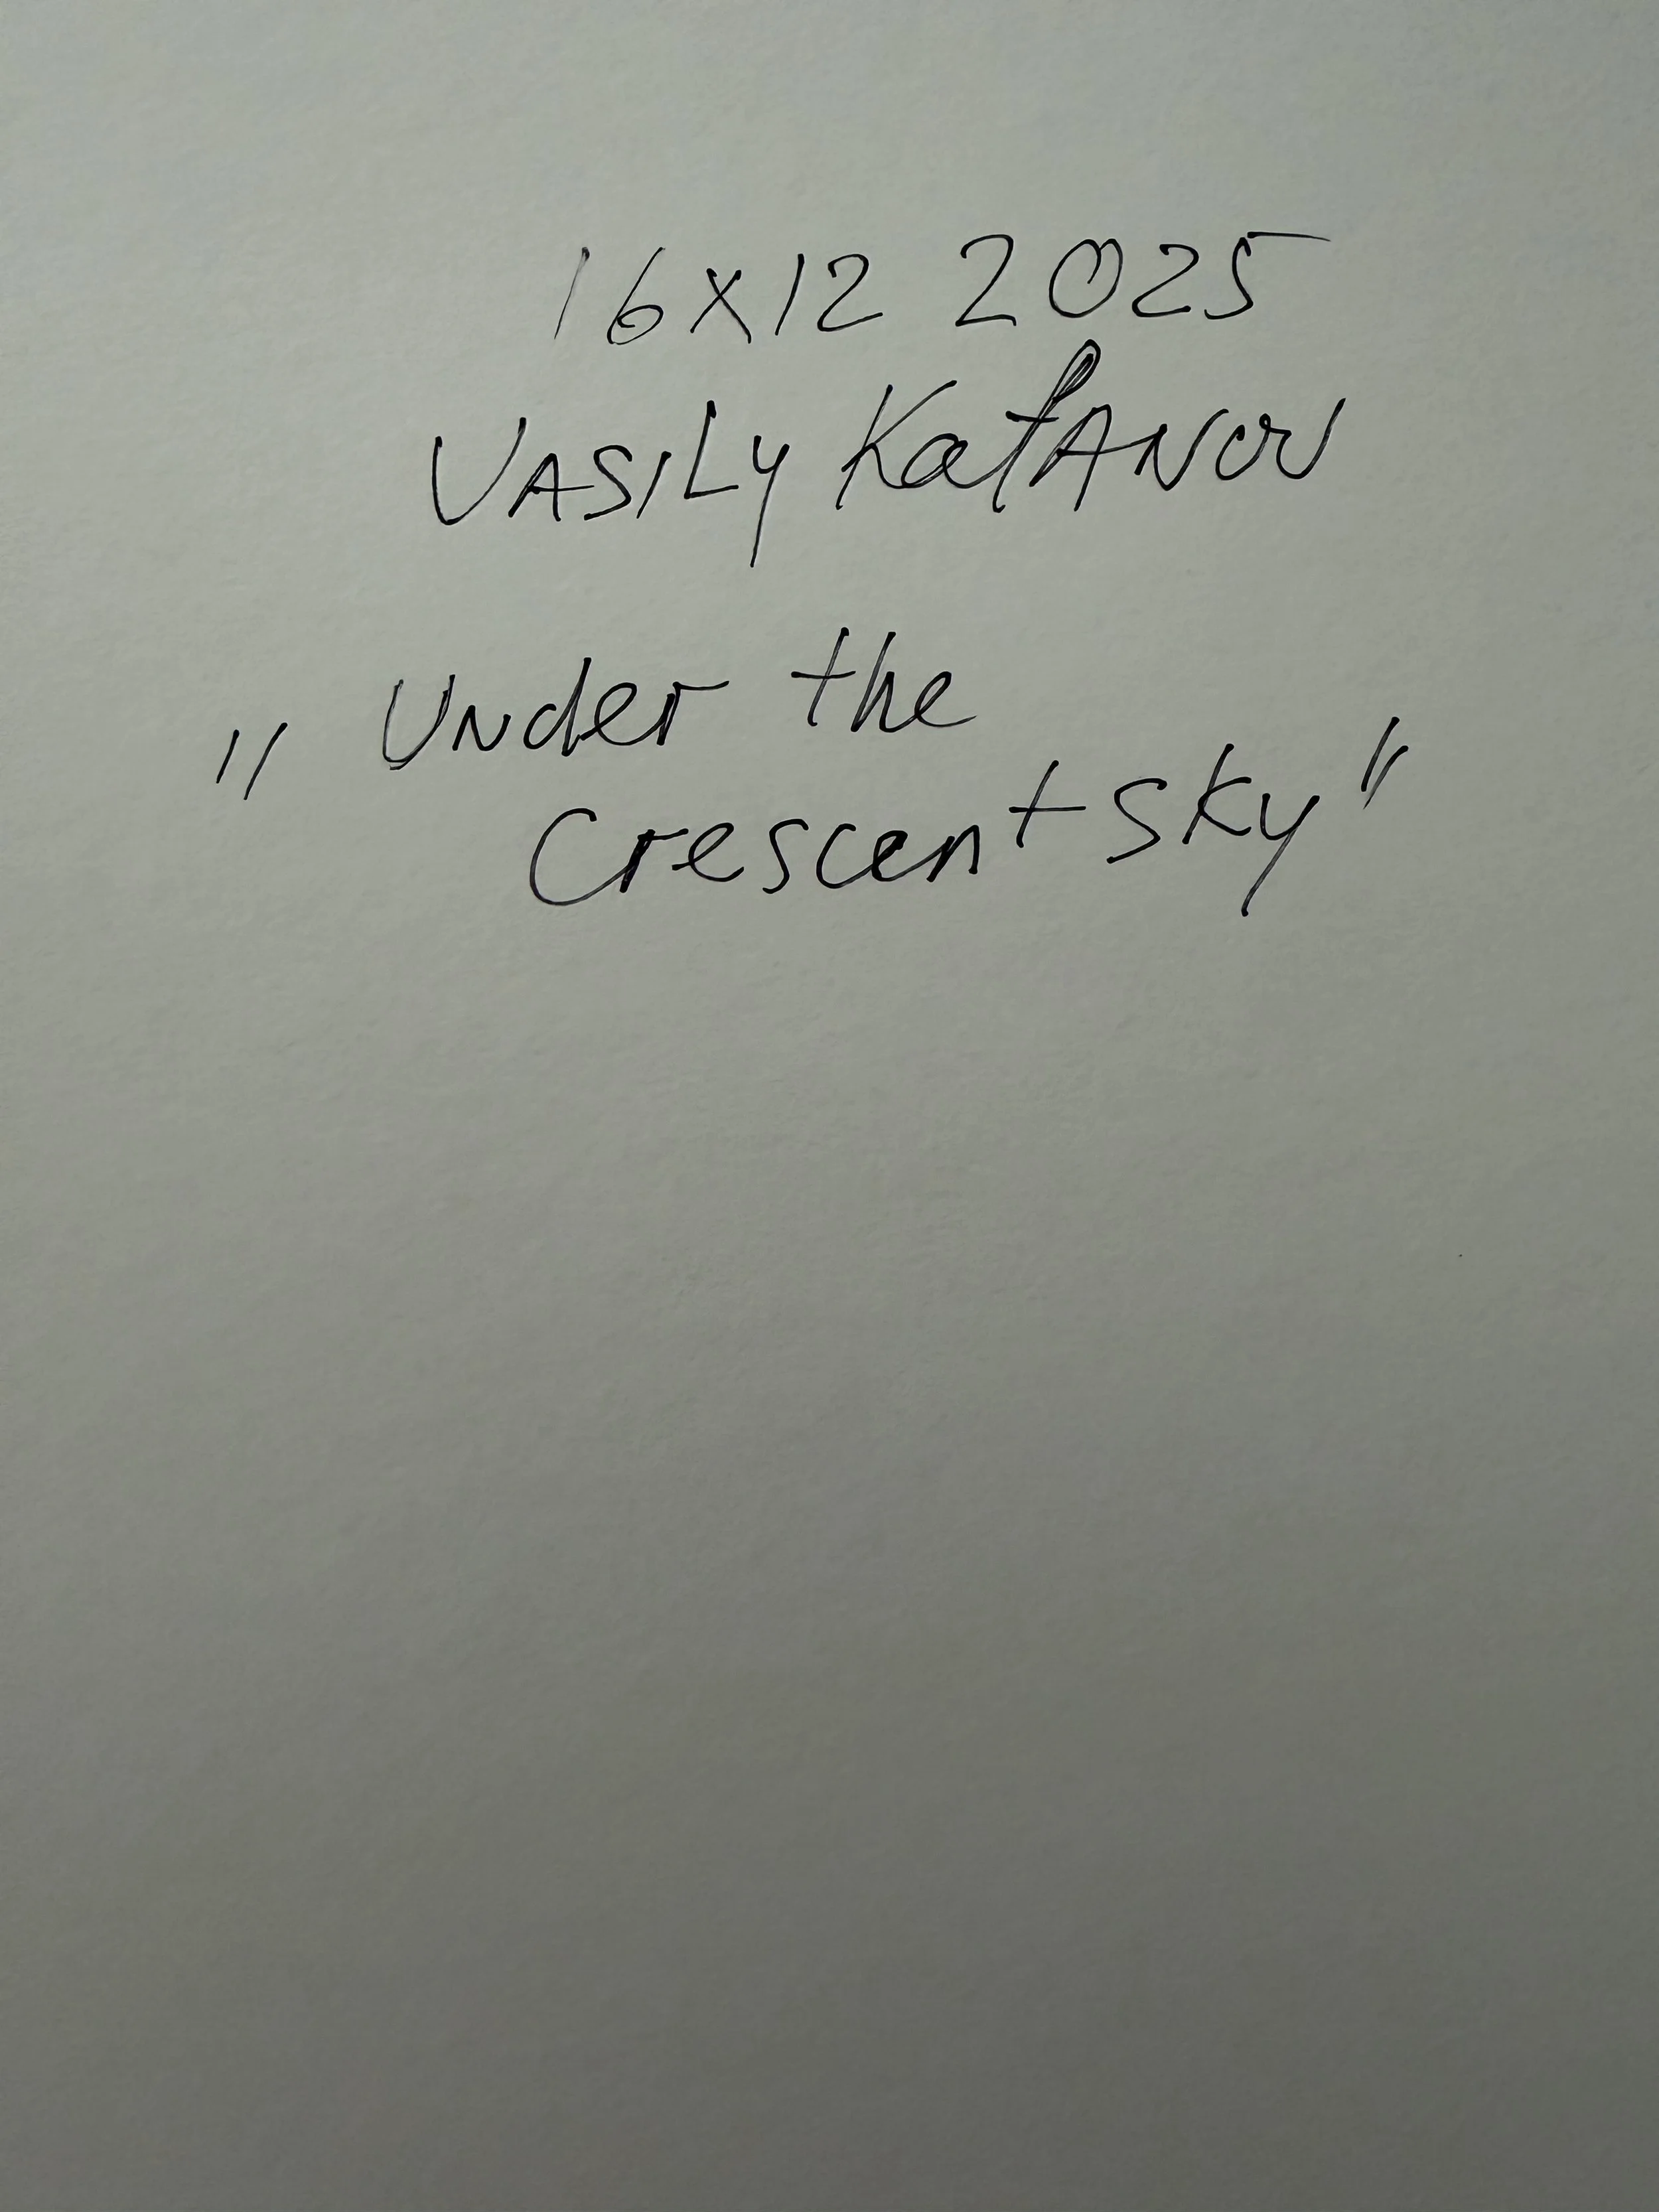 16x12 2025
VASILY KatANOV
"Under the
Crescent Sky"